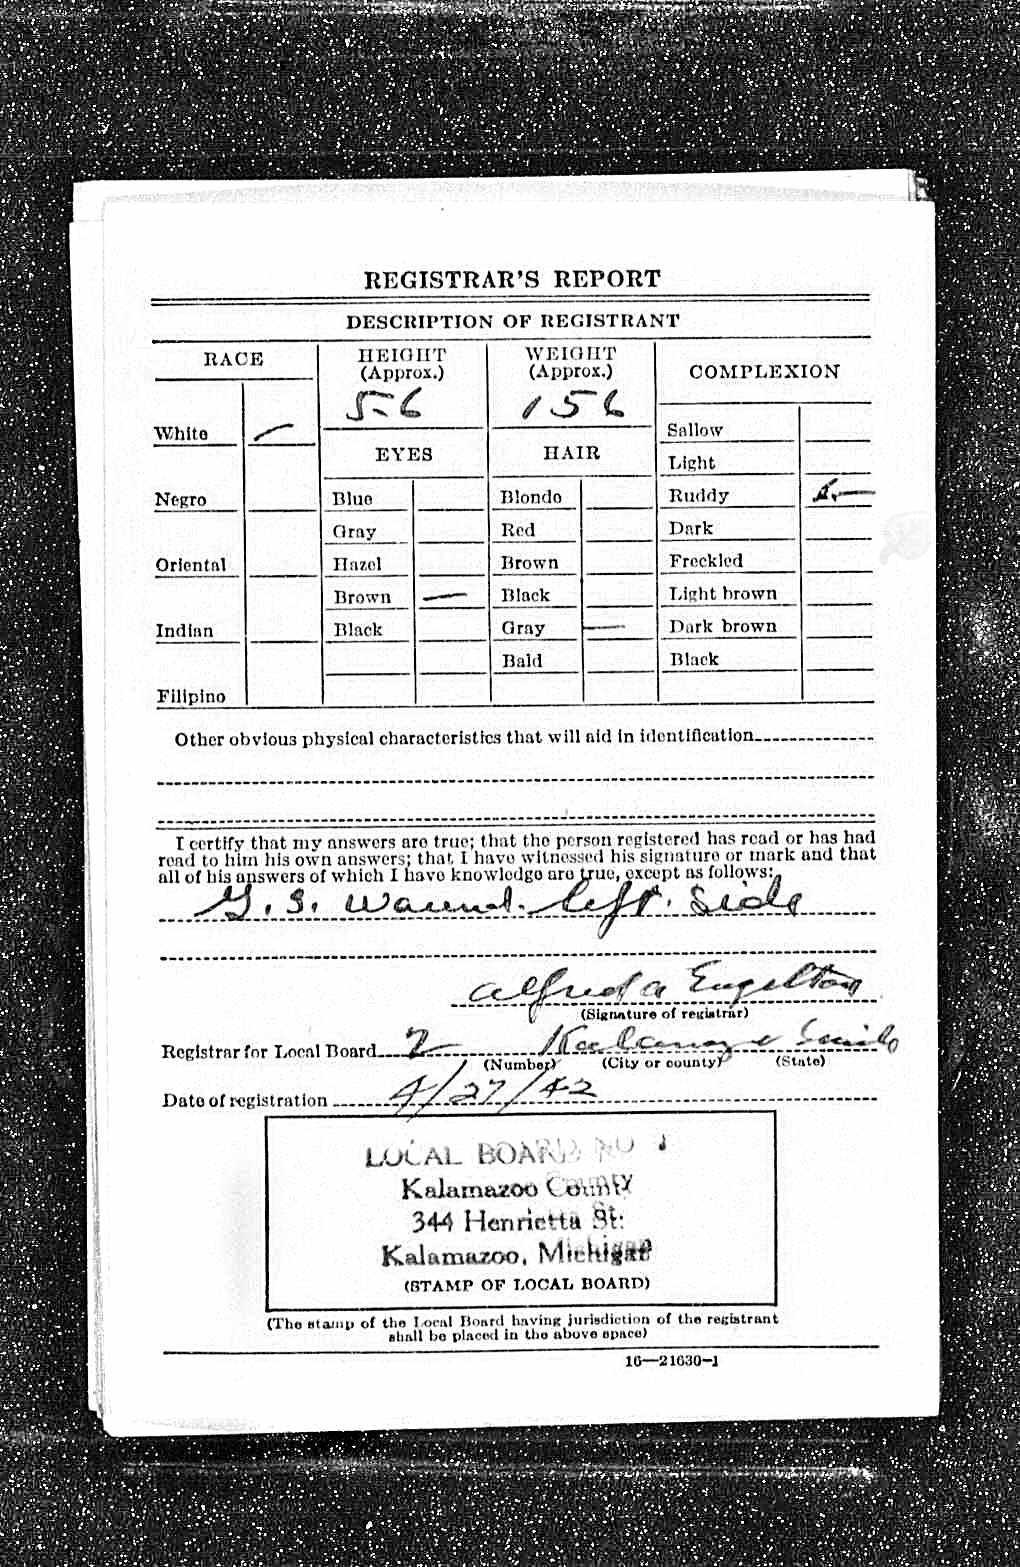 REGISTRAR'S REPORT
DESCRIPTION OF REGISTRANT
RACE
White
Negro
Oriental
Indian
Filipino
HEIGHT
(Approx.)
5-6
WEIGHT
(Approx.)
156
EYES
Blue
Gray
Hazel
Brown
Black
HAIR
Blonde
Red
Brown
Black
Gray
Bald
COMPLEXION
Sallow
Light
Ruddy
Dark
Freckled
Light brown
Dark brown
Black
Other obvious physical characteristics that will aid in identification
I certify that my answers are true; that the person registered has read or has had
read to him his own answers; that I have witnessed his signature or mark and that
all of his answers of which I have knowledge are true, except as follows:
G. S. Wound. left. Side
Alfred A
(Signature of registrar)
Registrar for Local Board 2 Kalamazoo
(Number) (City or county) (State)
Date of registration 4/27/42
LOCAL BOARD NO
Kalamazoo County
344 Henrietta St.
Kalamazoo, Michigan
(STAMP OF LOCAL BOARD)
(The stamp of the Local Board having jurisdiction of the registrant
shall be placed in the above space)
16—21630-1